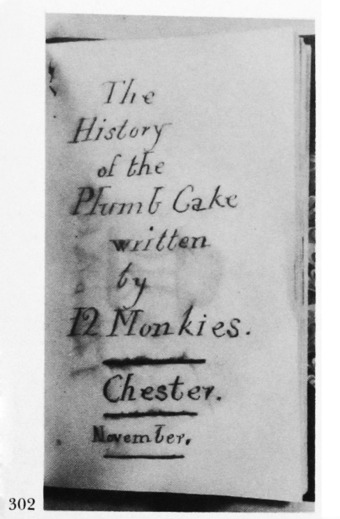 The
History
of the
Plumb Cake
written
by
12 Monkies.
Chester.
November.
302